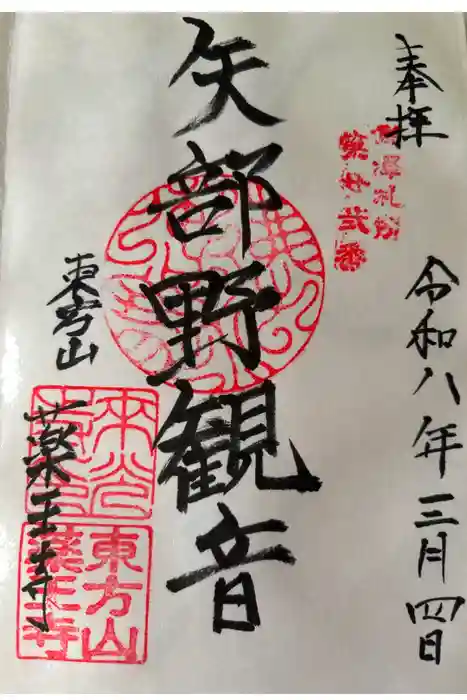 奉拝
第廿弐番
令和八年三月四日
矢部野観音
東方山
薬王寺
東方山
薬王寺